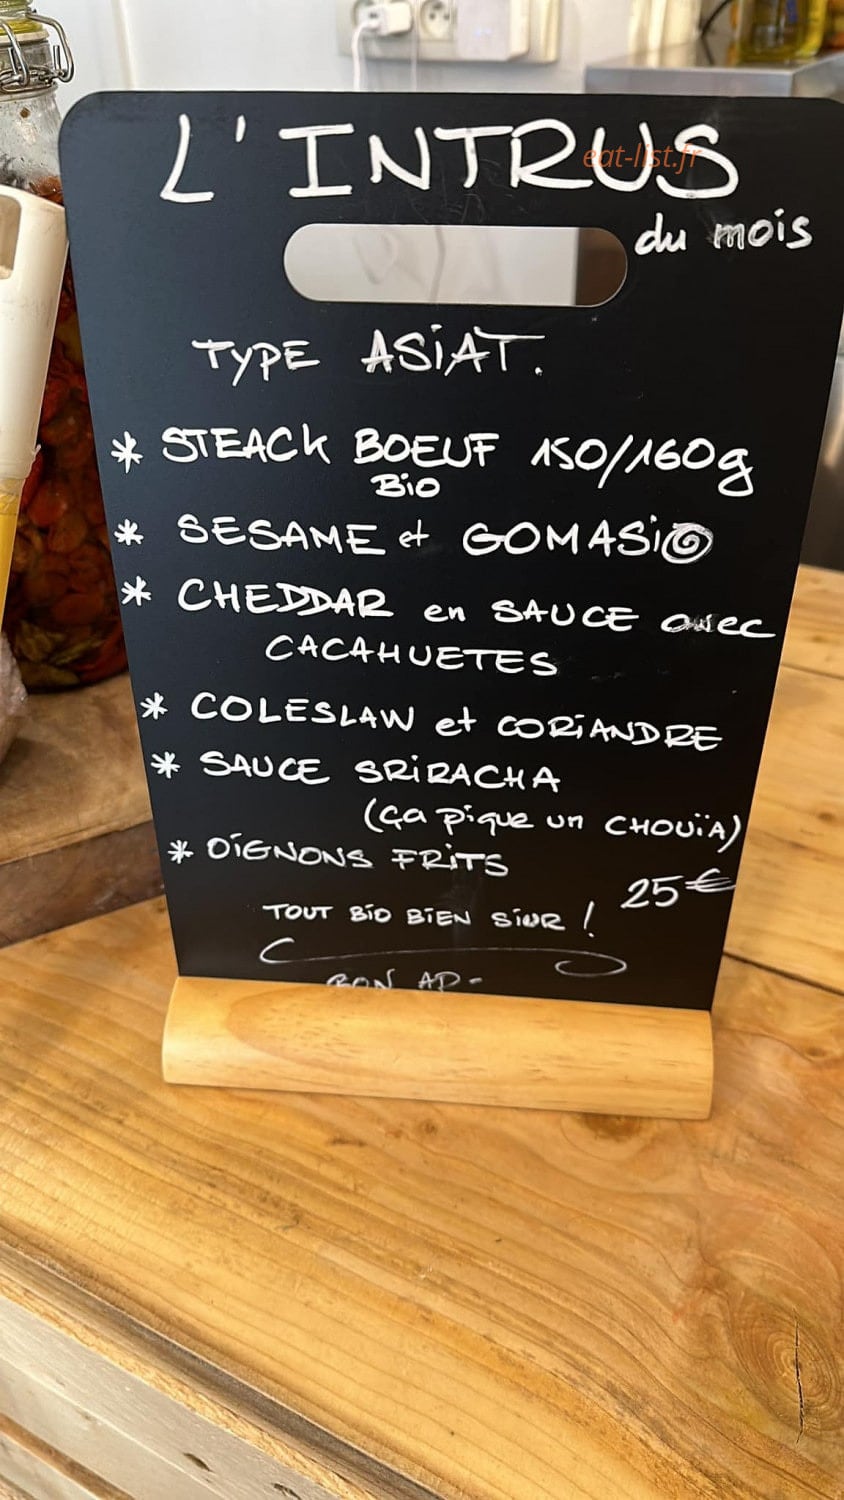 L'INTRUS
eat-list.fr
du mois
TYPE ASIAT.
* STEACK BOEUF 150/160g
BiO
* SESAME et GOMASiO
* CHEDDAR en SAUCE avec
CACAHUETES
* COLESLAW et CORiANDRE
* SAUCE SRiRACHA
(ça pique un CHOUÏA)
* OiGNONS FRiTS
25€
TOUT BiO BiEN SiUR !
BON AP-